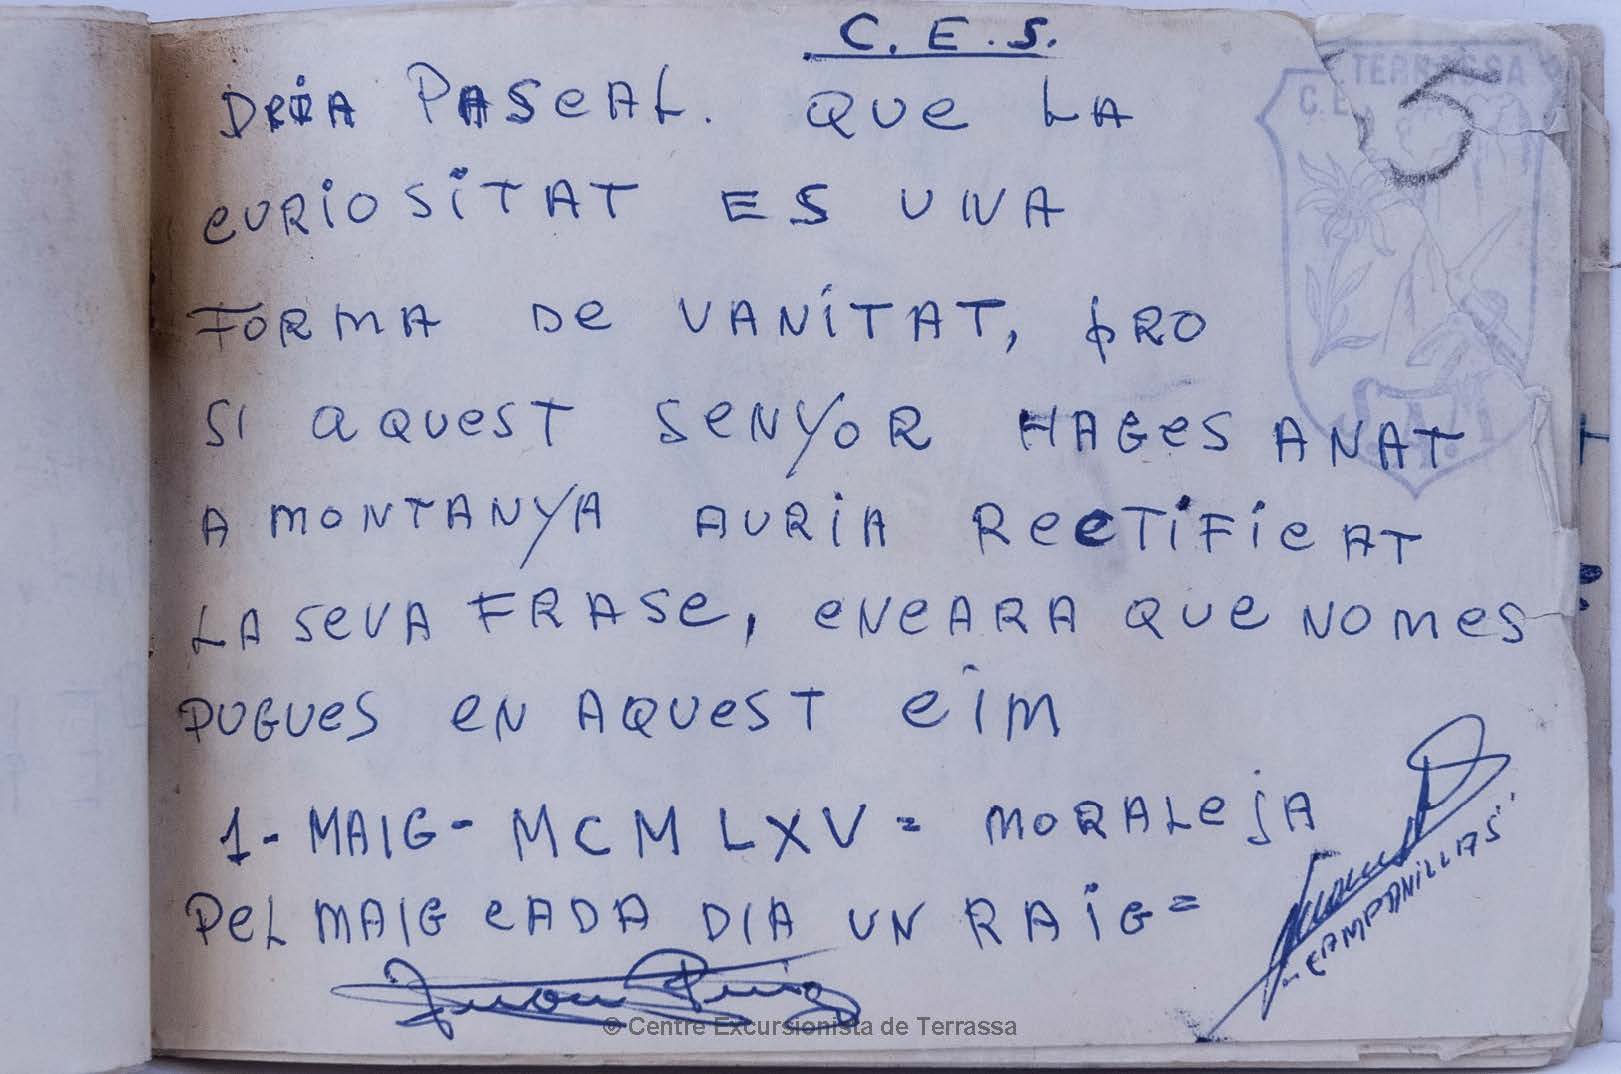 C. E. S.
DEIA PASCAL. QUE LA
CURIOSITAT ES UNA
FORMA DE VANITAT, PRO
SI AQUEST SENYOR HAGES ANAT
A MONTANYA AURIA RECTIFICAT
LA SEVA FRASE, ENCARA QUE NOMES
PUGUES EN AQUEST CIM
1-MAIG-MCMLXV= MORALEJA
PEL MAIG CADA DIA UN RAIG=
Juan Puig
"CAMPANILLAS"
C. E. TERRASSA
5
© Centre Excursionista de Terrassa